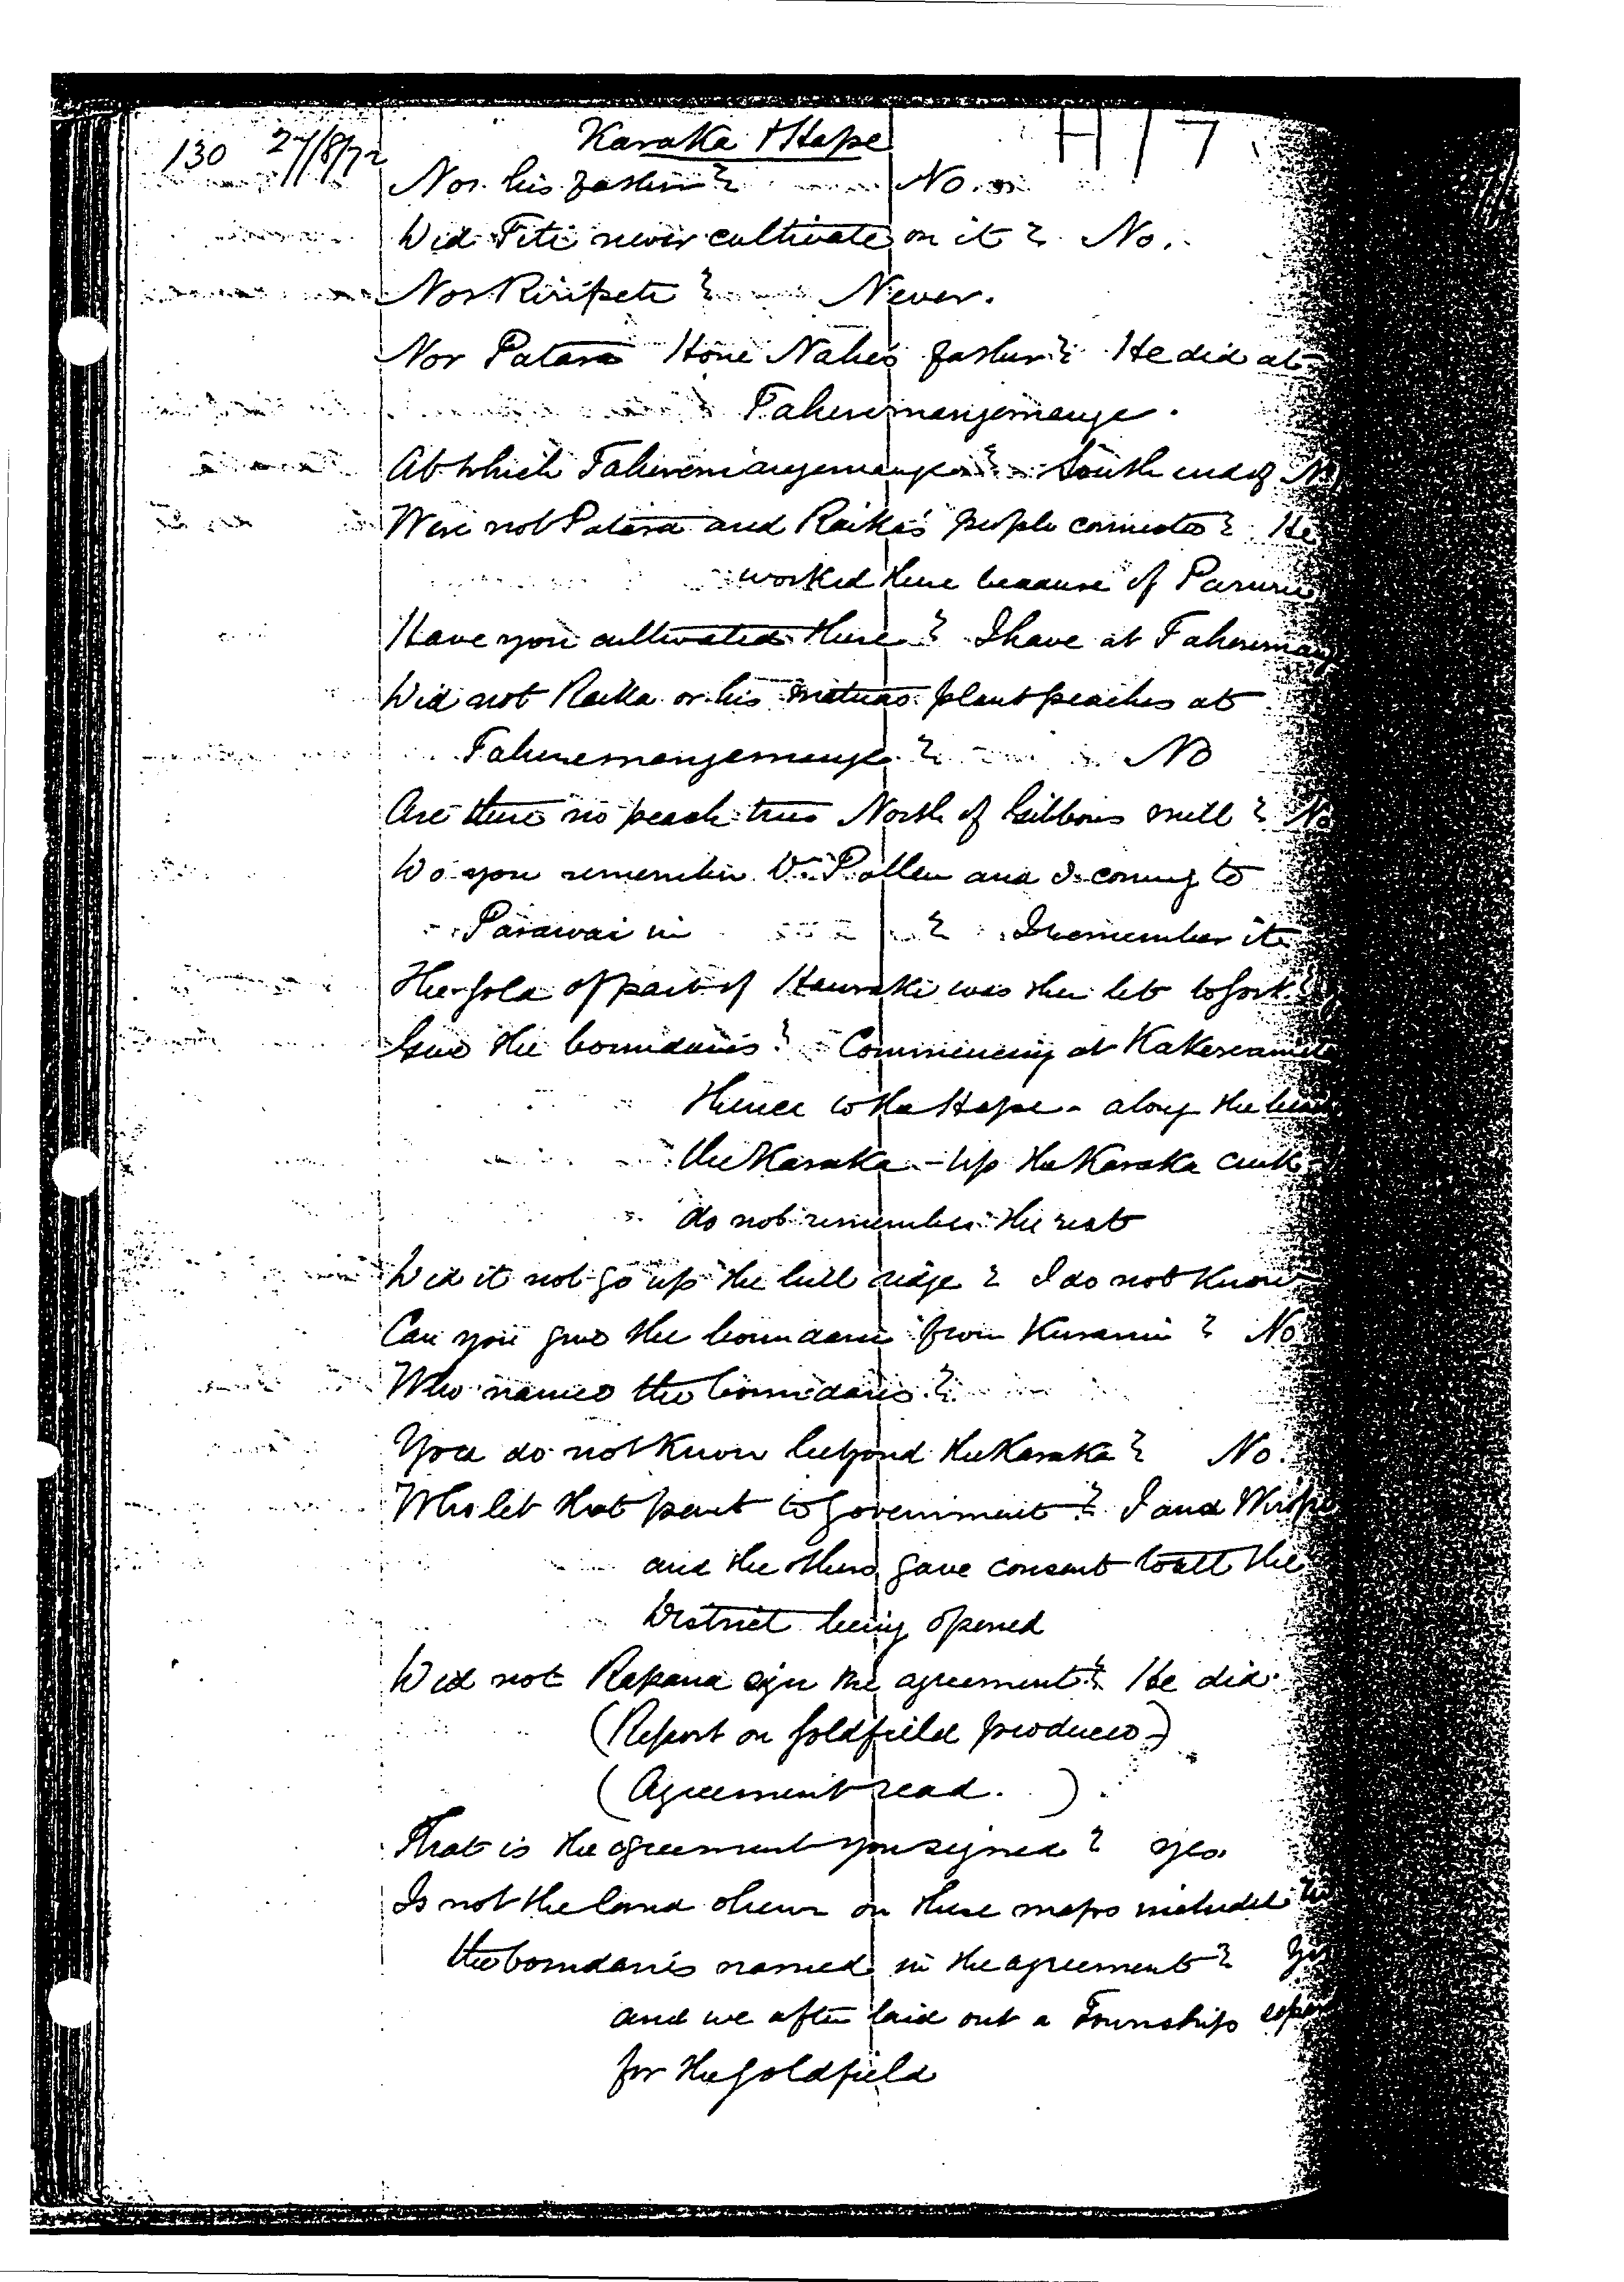 130 27/8/72 Karaka & Hape H17
Nor his father? No.
Did Titi never cultivate on it? No.
Nor Riripeti? Never.
Nor Patara Hone Nahe's father? He did at
Taheremangemange.
At which Taheremangemange? South end of
Were not Patara and Raika's people connected? He
worked there because of
Have you cultivated there? I have at
Did not Raika or his matuas plant peaches at
Taheremangemange? No
Are there no peach trees North of Gibbons mill? No
Do you remember Dr. Pollen and I coming to
Parawai in ? I remember it
The gold of part of Hauraki was then let to Govt.?
Give the boundaries? Commencing at
thence to the Hape - along the
the Karaka - up the Karaka creek -
do not remember the rest
Did it not go up the hill ridge? I do not know
Can you give the boundaries from ? No
Who named the boundaries?
You do not know beyond the Karaka? No.
Who let that part to Government? I and
and the others gave consent to all the
District being opened
Did not Rapana sign the agreement? He did.
(Report on goldfield produced -)
(Agreement read. ).
That is the agreement you signed? Yes.
Is not the land shewn on these maps included in
the boundaries named in the agreement? Yes
and we after laid out a Township
for the goldfield